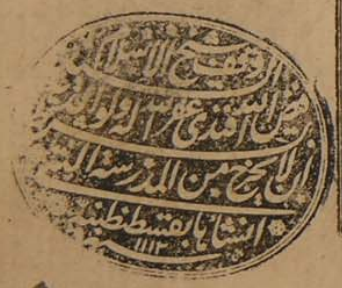 وقف شيخ الاسلام السيد
فيض الله افندى غفر الله له ولوالديه
ان لا يخرج من المدرسة التي
انشأها بقسطنطنية
١١١٢